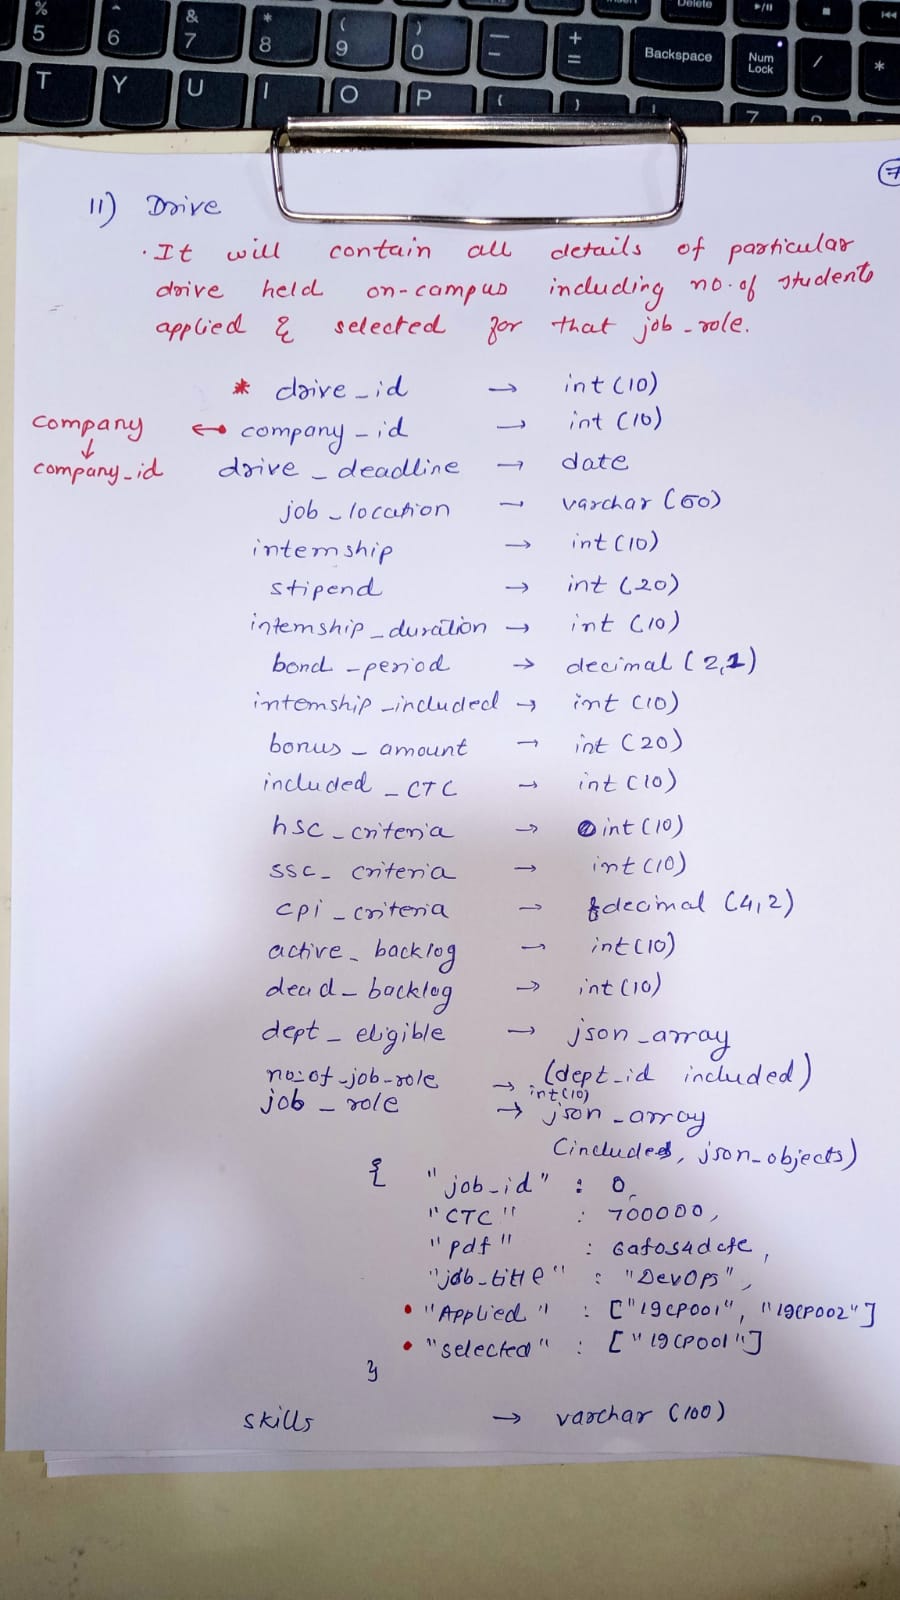 % 5 ^ 6 & 7 * 8 ( 9 ) 0 — - + = Backspace Delete Num Lock / *
T Y U I O P { } 7
7
11) Drive
· It will contain all details of particular
drive held on-campus including no. of students
applied & selected for that job-role.
* drive_id → int (10)
company ↔ company_id → int (10)
↓
company_id
drive_deadline → date
job_location → varchar (50)
internship → int (10)
stipend → int (20)
internship_duration → int (10)
bond_period → decimal (2,1)
internship_included → int (10)
bonus_amount → int (20)
included_CTC → int (10)
hsc_criteria → int (10)
ssc_criteria → int (10)
cpi_criteria → decimal (4,2)
active_backlog → int (10)
dead_backlog → int (10)
dept_eligible → json_array
(dept_id included)
no:of-job-role → int (10)
job_role → json_array
(included, json_objects)
{ "job_id" : 0,
"CTC" : 700000,
"pdf" : 6afos4dcfe,
"job_title" : "DevOps",
• "Applied" : ["19CP001", "19CP002"]
• "selected" : ["19CP001"]
}
skills → varchar (100)